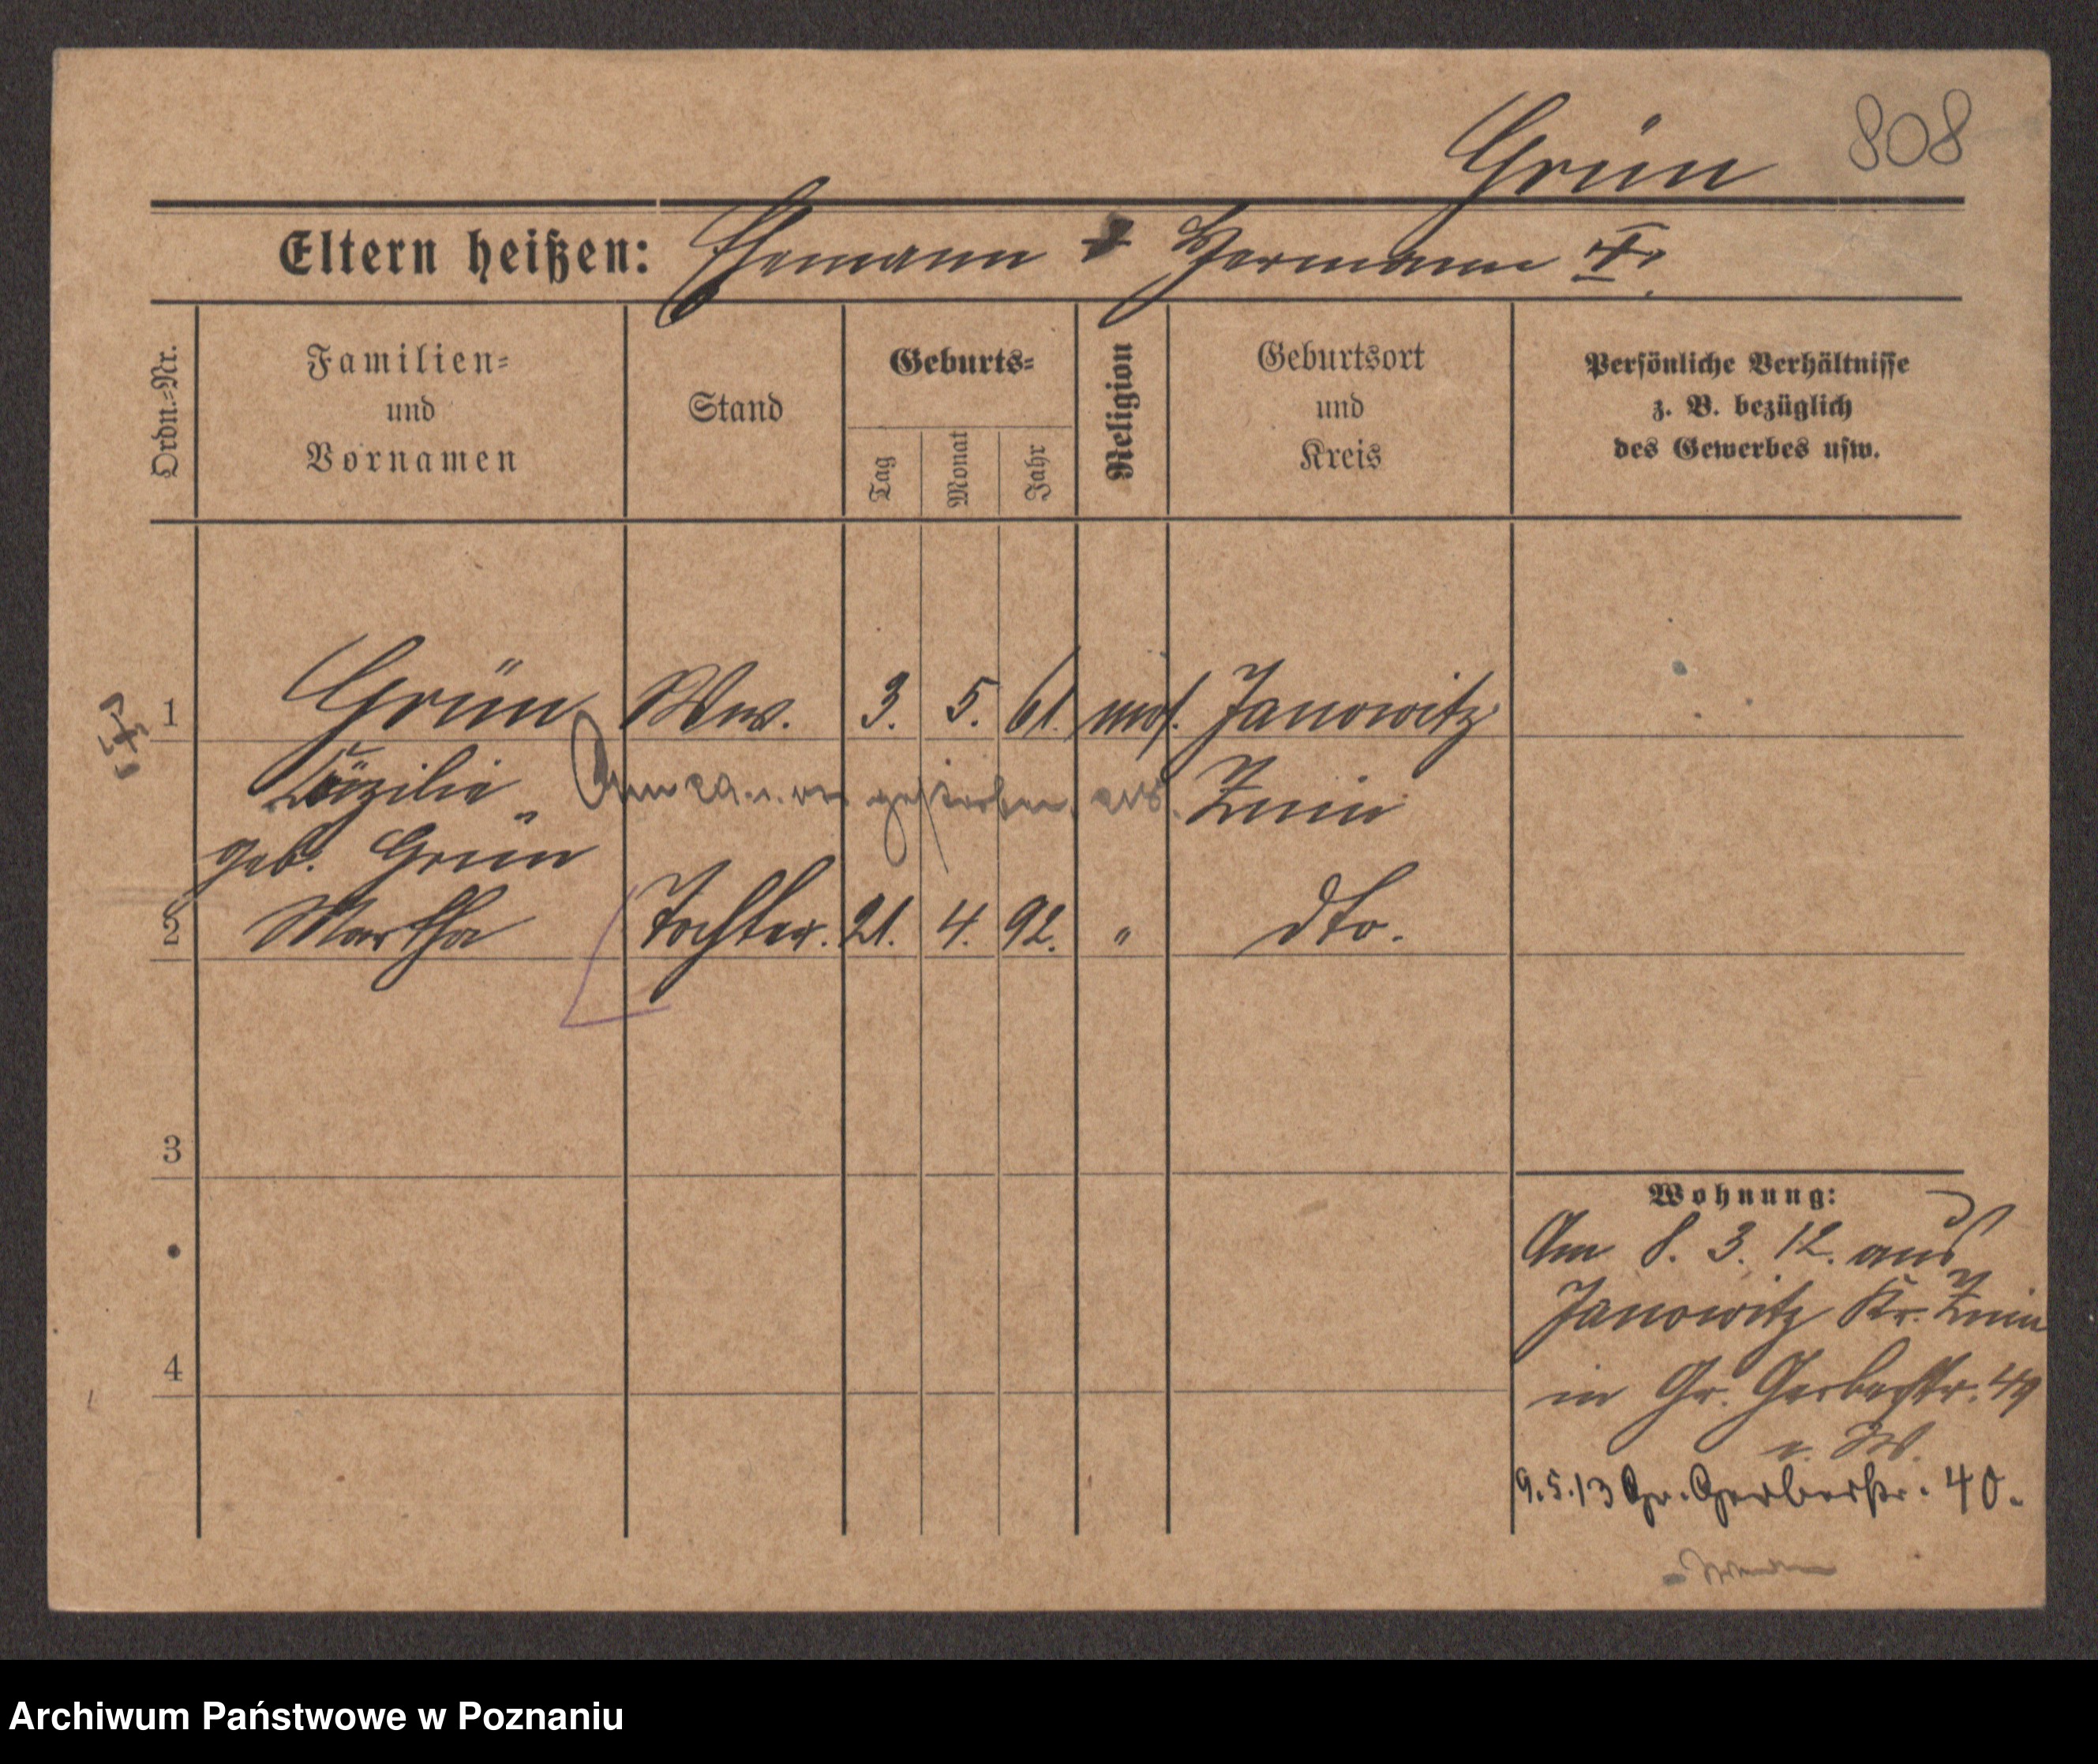 Grün 808
Eltern heißen: Ehemann Hermann †.
Ordn.=Nr.
Familien=
und
Vornamen
Stand
Geburts=
Tag
Monat
Jahr
Religion
Geburtsort
und
Kreis
Persönliche Verhältnisse
z. B. bezüglich
des Gewerbes usw.
1 Grün Ww. 3. 5. 61. mos. Janowitz
Cäzilie gestorben. Znin
geb. Grün
2 Martha Tochter. 21. 4. 92. " dto.
3
Wohnung:
Am 8. 3. 12. aus
Janowitz Kr. Znin
4
in Gr. Gerberstr. 49
v. W.
9.5.13 Gr. Gerberstr. 40.
Archiwum Państwowe w Poznaniu